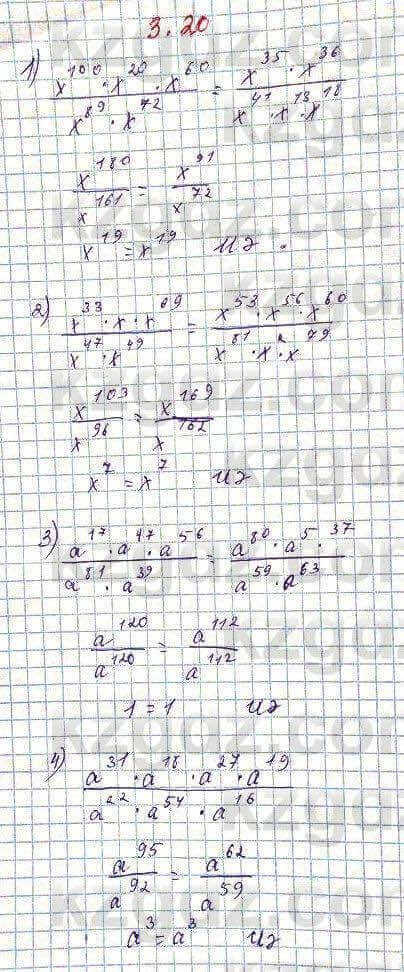 3.20
1) x^100 · x^20 · x^60 / x^89 · x^72 = x^35 · x^36 / x^41 · x^13 · x^18
x^180 / x^161 = x^91 / x^72
x^19 = x^19 из.
2) x^33 · x · x^69 / x^47 · x^49 = x^53 · x^56 · x^60 / x^81 · x^2 · x^79
x^103 / x^96 = x^169 / x^162
x^7 = x^7 из
3) a^17 · a^47 · a^56 / a^81 · a^39 = a^80 · a^5 · ^37 / a^59 · a^63
a^120 / a^120 = a^112 / a^112
1 = 1 из
4) a^31 · a^18 · a^27 · a^19 / a^22 · a^54 · a^16
a^95 / a^92 = a^62 / a^59
a^3 = a^3 из